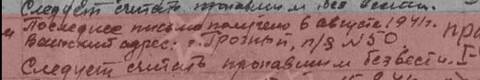 Следует считать пропавшим без вести.
Последнее письмо получено 6 августа 1941г.
Воинский адрес: г. Грозный, п/я №50
Следует считать пропавшим без вести. I